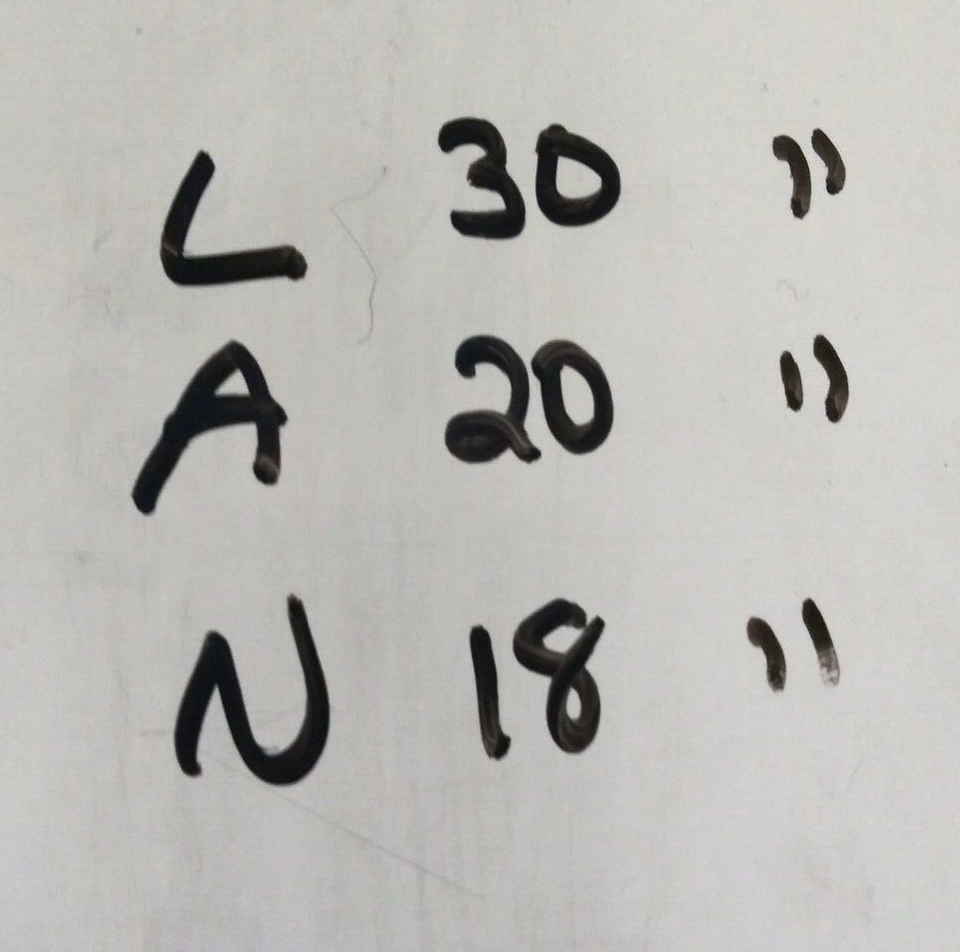 L 30 "
A 20 "
N 18 "